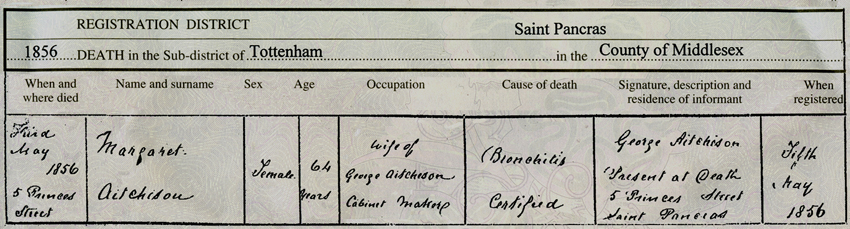 REGISTRATION DISTRICT Saint Pancras
1856 DEATH in the Sub-district of Tottenham in the County of Middlesex
When and where died
Name and surname
Sex
Age
Occupation
Cause of death
Signature, description and residence of informant
When registered
Third
May
1856
5 Princes
Street
Margaret
Aitchison
Female
64
years
Wife of
George Aitchison
Cabinet Maker
Bronchitis
Certified
George Aitchison
Present at Death
5 Princes Street
Saint Pancras
Fifth
May
1856